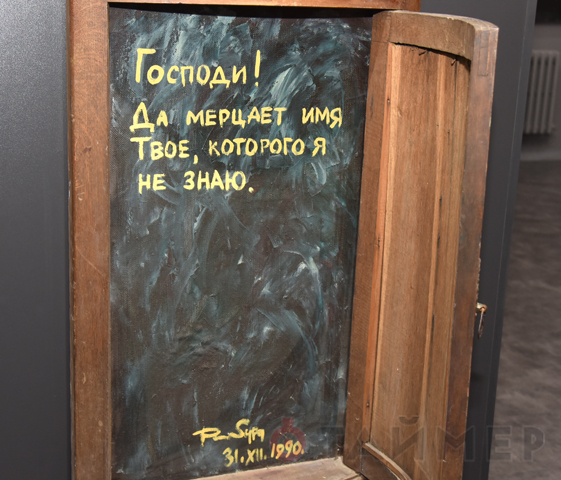 Господи!
Да мерцает имя
Твое, которого я
не знаю.
31.XII.1990.
ТАЙМЕР